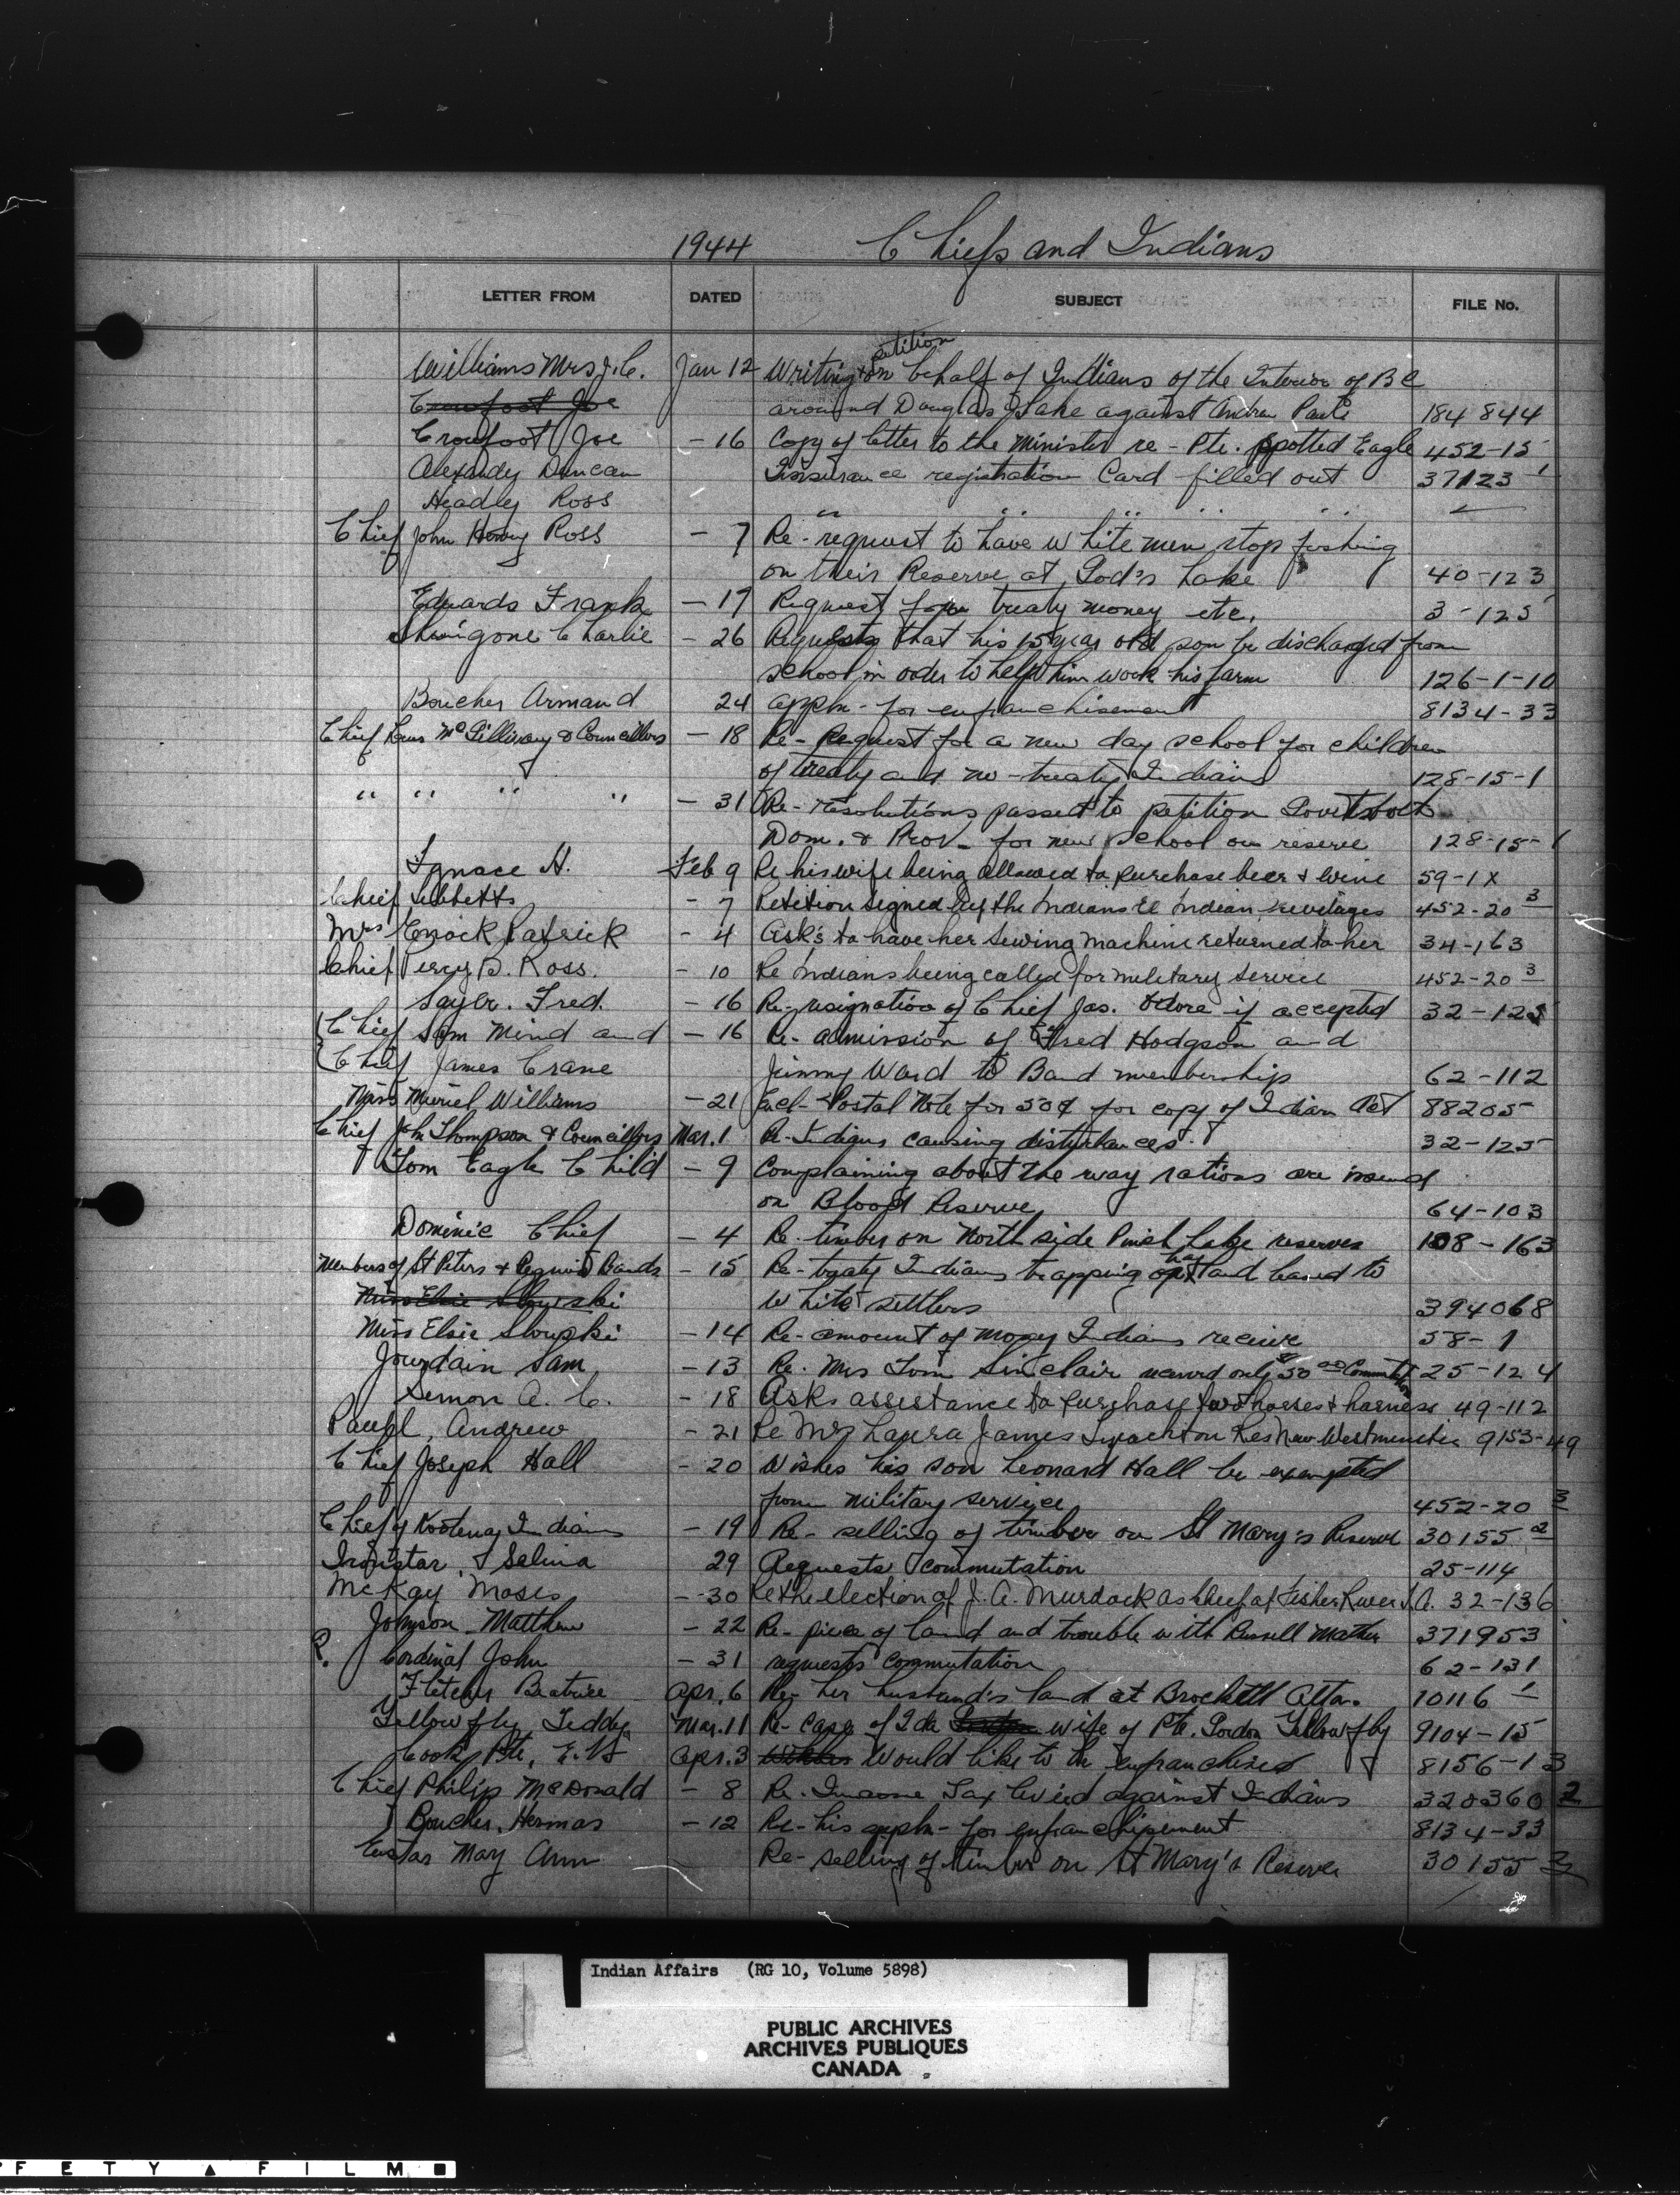 1944 Chiefs and Indians
LETTER FROM DATED SUBJECT FILE No.
petition
Williams Mrs J.C. Jan 12 Writing on behalf of Indians of the Interior of B C
Crowfoot Joe around Douglas Lake against Andrew Paull 184 844
Crowfoot Joe - 16 Copy of letter to the Minister re - Pte. Spotted Eagle 452-15
Duncan Insurance registration Card filled out 37123 1
Headley Ross " " " " "
Chief John Ross - 7 Re - request to have white men stop fishing
on their Reserve at God's Lake 40-123
Edwards Frank - 17 Request for treaty money etc. 3-125
Charlie - 26 Requests that his 15 year old son be discharged from
school in oder to help him work his farm 126-1-10
Boucher Armand 24 appln - for enfranchisement 8134-33
Chief McGillivary & Councillors - 18 Re - Request for a new day school for children
of treaty and no-treaty Indians 128-15-1
" " " " - 31 Re - resolutions passed to petition Govt both
Dom. & Prov - for new school on reserve 128-15-1
Ignace H. Feb 9 Re his wife being allowed to purchase beer & wine 59-1X
Chief Tibbetts - 7 Petition signed by the Indians re Indian 452-20 3
Mrs Enock Patrick - 4 Ask's to have her sewing machine returned to her 34-163
Chief Percy B. Ross. - 10 Re Indians being called for military service 452-20 3
Sayer. Fred. - 16 Re-resignation of Chief Jas. if accepted 32-125
Chief Sam Mind and - 16 Re - admission of Fred Hodgson and
Chief James Crane Jimmy Ward to Band membership 62-112
Miss Muriel Williams - 21 Encl - Postal Note for 50¢ for copy of Indian Act 88205
Chief John Thompson & Councillors Mar. 1 Re - Indians causing disturbances. 32-125
Tom Eagle Child - 9 Complaining about the way rations are issued
on Blood Reserve 64-103
Dominic Chief - 4 Re - timber on North side Lake reserves 108-163
Members of St Peters & Peguis Bands - 15 Re - treaty Indians trapping on hay land leased to
Miss Elsie White settlers 394068
Miss Elsie - 14 Re - amount of mony Indians receive 58-1
Jourdain Sam - 13 Re. Mrs Tom Sinclair received only $50 00 25-124
Semon A. C. - 18 Asks assistance to purchase two horses & harness 49-112
Paull, Andrew - 21 Re Mrs Laura James Res New Westminster 9153-49
Chief Joseph Hall - 20 Wishes his son Leonard Hall be exempted
from military service 452-20 3
Chief of Kootenay Indians - 19 Re - selling of timber on St Mary's Reserve 30155 2
Ironstar, Selina 29 Requests commutation 25-114
McKay Moses - 30 Re the election of J. A. Murdock as Chief at Fisher River I.A. 32-136
Johnson - Matthew - 22 Re - piece of land and trouble with Russell Mather 371953
R. Cardinal John - 31 requests commutation 62-131
Fletcher Beatrice Apr. 6 Re - her husband's land at Brockett Alta. 10116 1
Yellowfly, Teddy Mar. 11 Re - Case of Ida wife of Pte. Gordon Yellowfly 9104-15
Cook, Pte, E.V. Apr. 3 Would like to be enfranchised 8156-13
Chief Philip McDonald - 8 Re - Income Tax levied against Indians 320360 2
Boucher, Hermas - 12 Re - his appln - for enfranchisement 8134-33
Eustas Mary Ann Re - selling of timber on St Mary's Reserve 30155 2
Indian Affairs (RG 10, Volume 5898)
PUBLIC ARCHIVES
ARCHIVES PUBLIQUES
CANADA
F E T Y ▲ F I L M ■